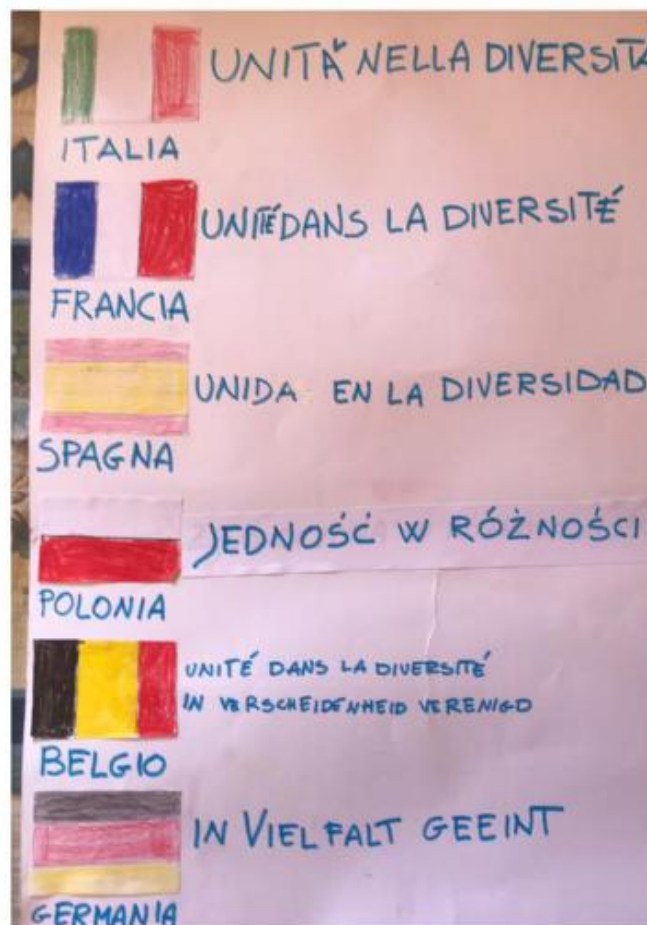 UNITÀ NELLA DIVERSITÀ
ITALIA
UNITÉ DANS LA DIVERSITÉ
FRANCIA
UNIDA EN LA DIVERSIDAD
SPAGNA
JEDNOŚĆ W RÓŻNOŚCI
POLONIA
UNITÉ DANS LA DIVERSITÉ
IN VERSCHEIDENHEID VERENIGD
BELGIO
IN VIELFALT GEEINT
GERMANIA